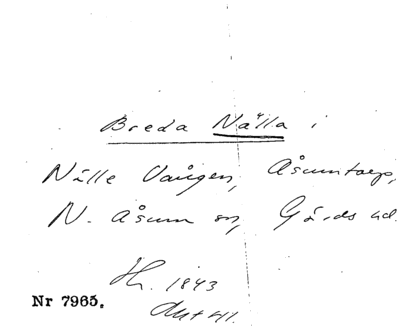 Breda Nälla i
Nälle Vången, Åsumtorp,
N. Åsum sn, Gärds hd.
Hr. 1843
Akt 41.
Nr 7965.